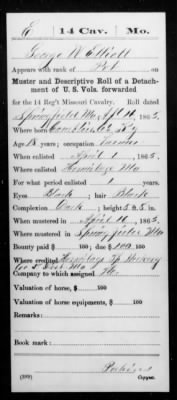 E | 14 Cav. | Mo.
George W. Elliott
Appears with rank of Pvt on
Muster and Descriptive Roll of a Detach-
ment of U. S. Vols. forwarded
for the 14 Reg't Missouri Cavalry. Roll dated
Springfield Mo, Apl 16, 1865.
Where born Co. Ky
Age 18 years; occupation Farmer
When enlisted April 1, 1865.
Where enlisted Hermitage Mo
For what period enlisted 1 years.
Eyes Black; hair Black
Complexion Dark; height 5 ft. 5 in.
When mustered in April 16, 1865.
Where mustered in Springfield Mo
Bounty paid $ 100; due $ 100 100
Where credited Hermitage Tp Hickory
Co Mo
Company to which assigned
Valuation of horse, $ 100
Valuation of horse equipments, $ 100
Remarks:
Book mark:
(389)
Copyist.